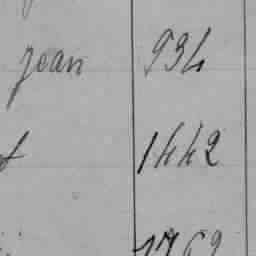 Jean 934
1442
1769